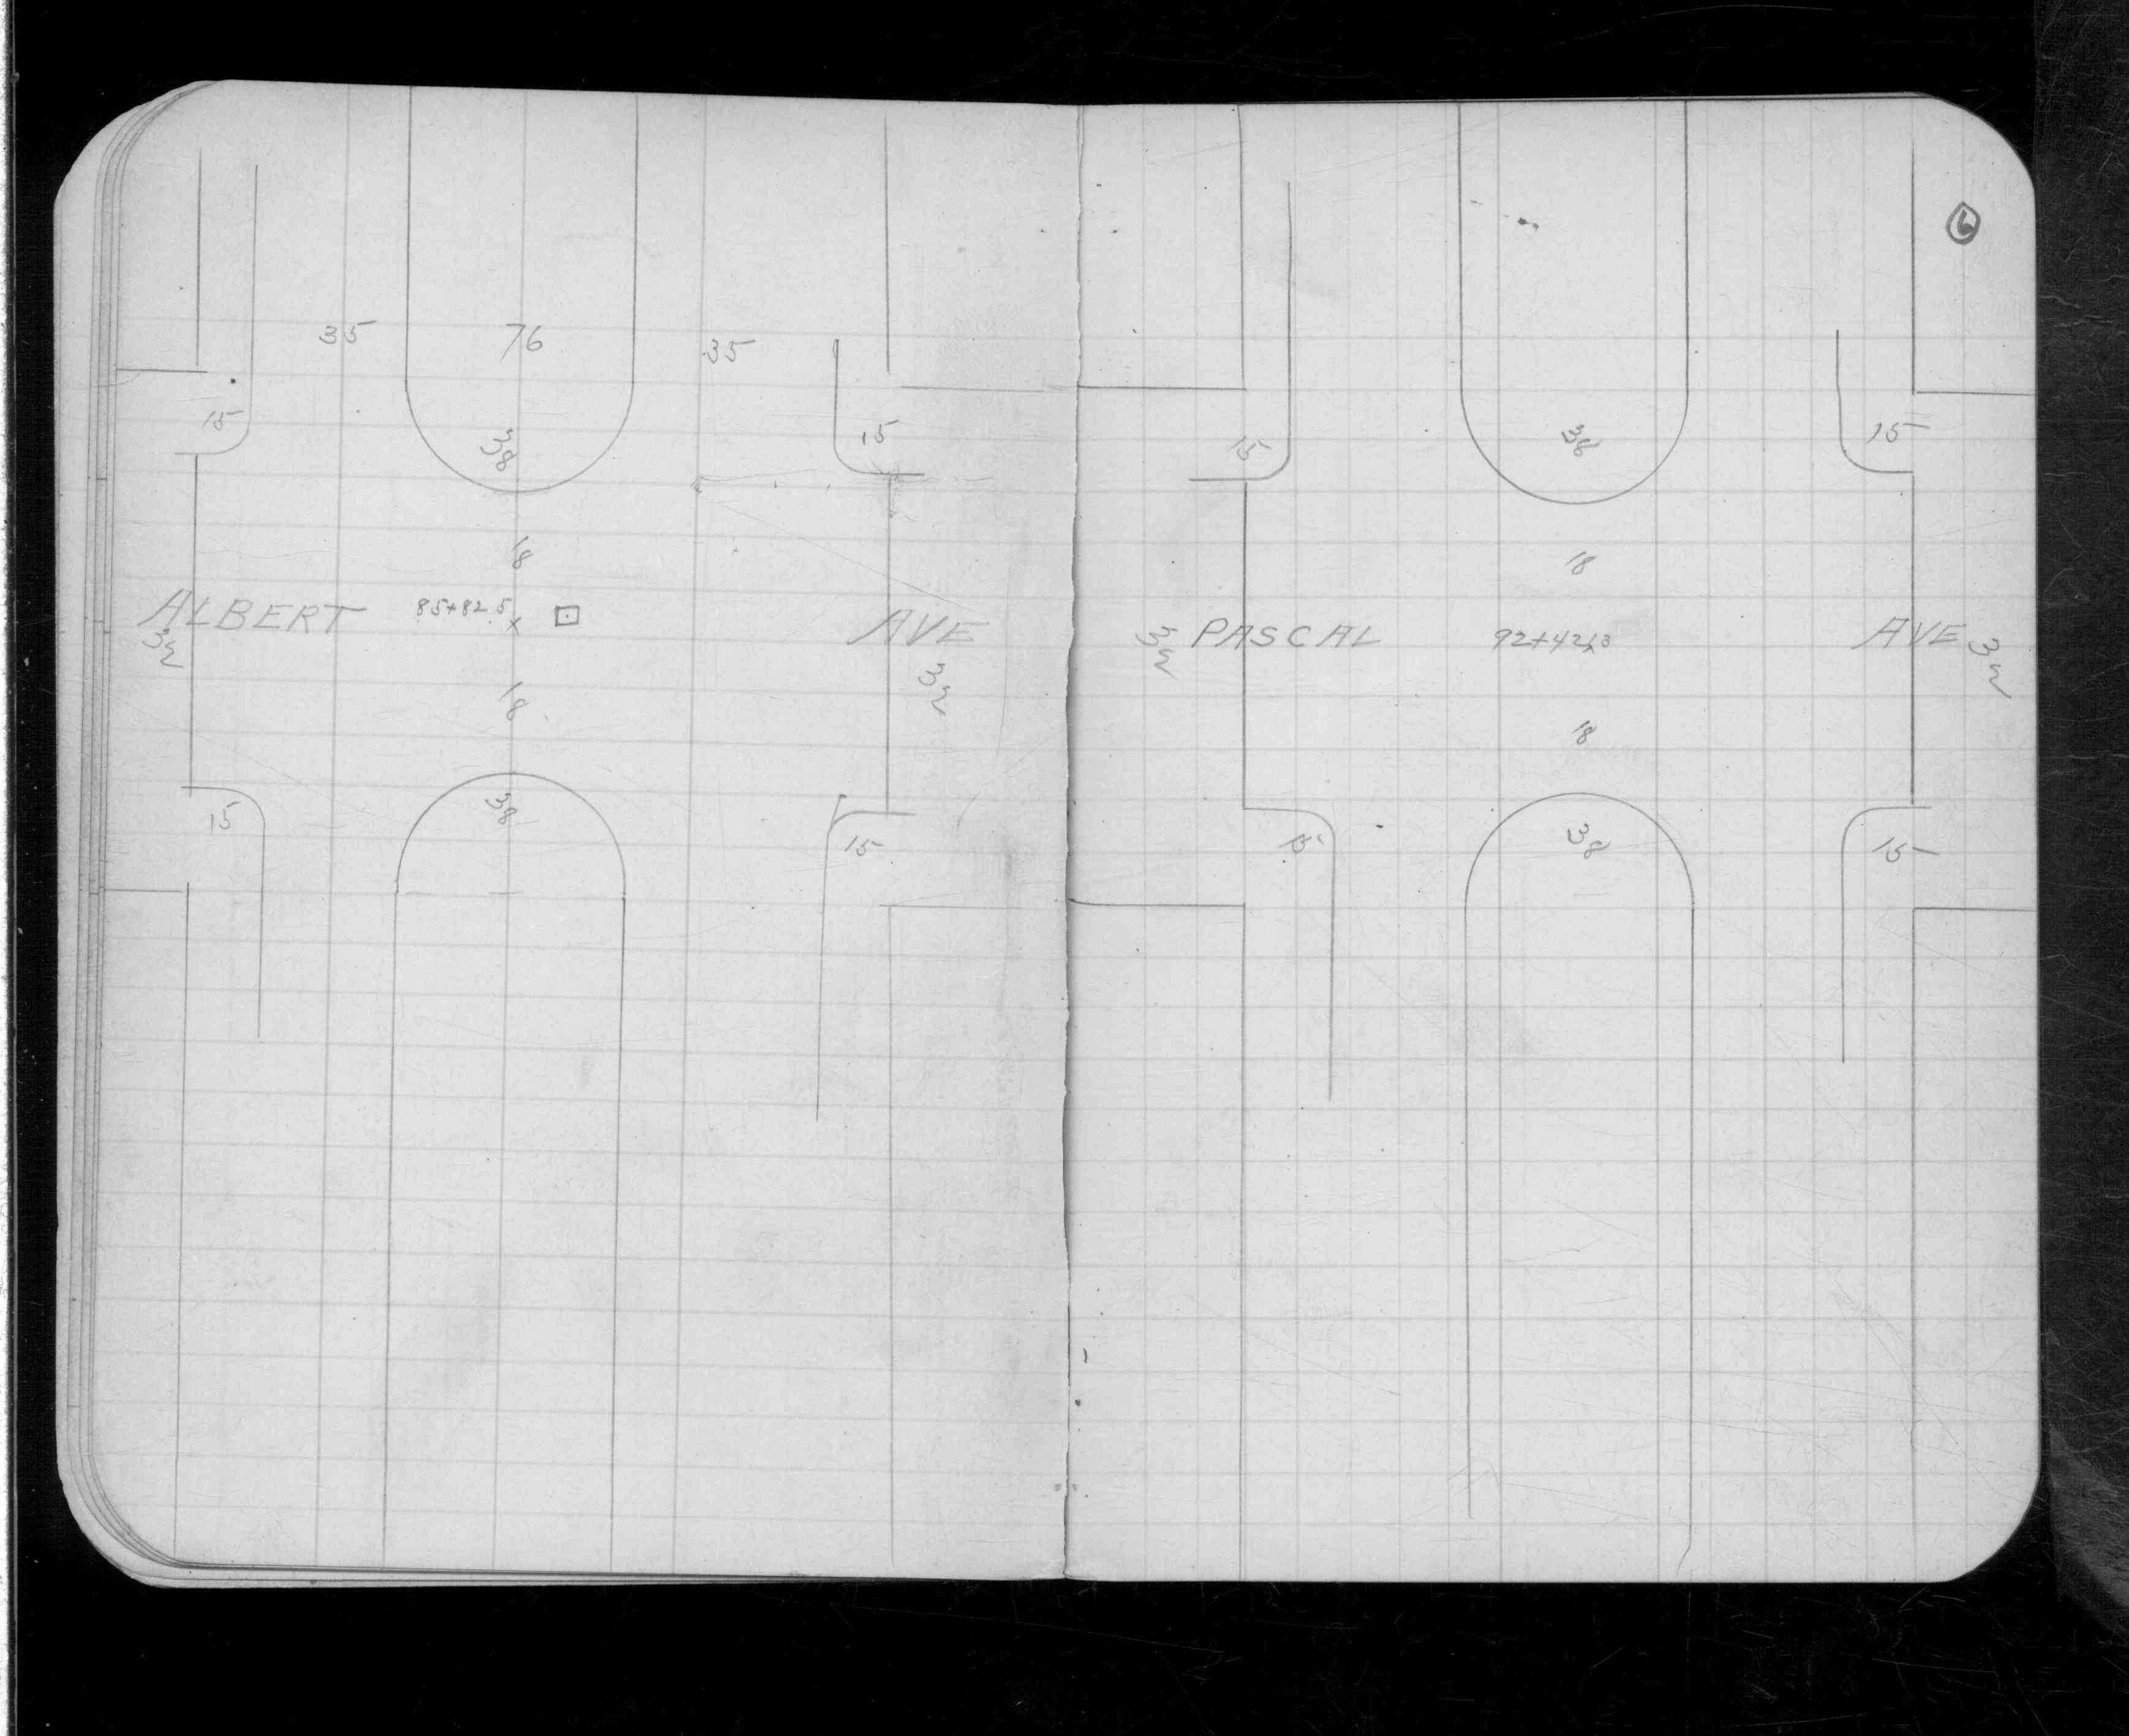 35 76 35
15 38 15
18
ALBERT 85+82.5 AVE
32 32
18
38
15 15
6
15 38 15
18
PASCAL 92+42.3 AVE
32 32
18
15 38 15